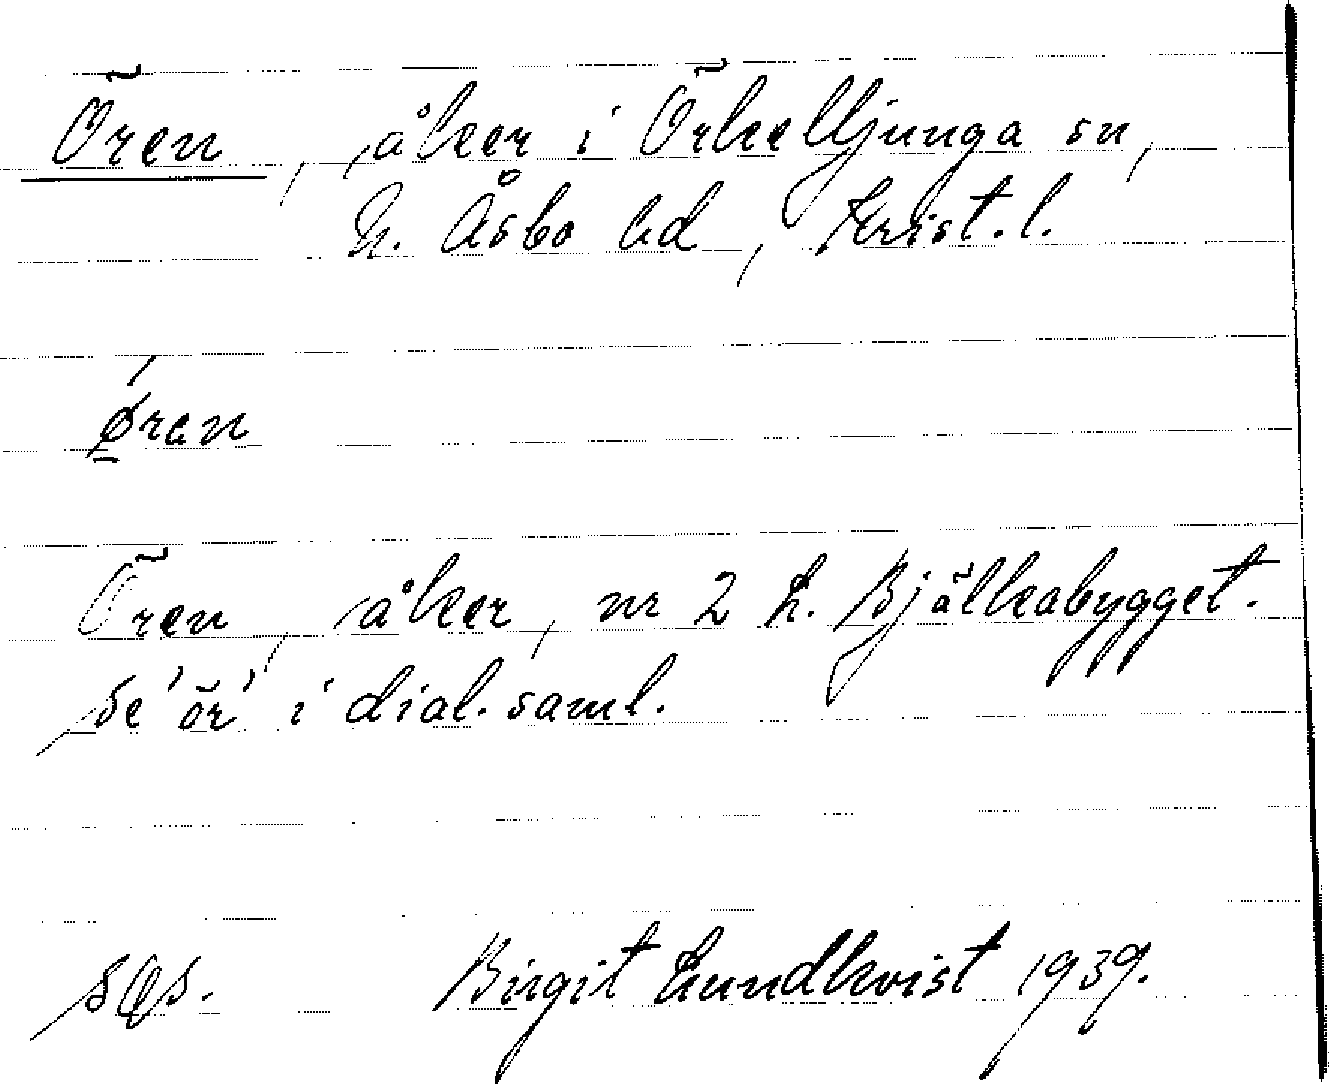 Ören, åker i Örkelljunga sn,
N. Åsbo hd, Krist. l.
ǿran
Ören, åker, nr 2 L. Bjälkabygget.
Se 'ör' i dial. saml.
Birgit Lundkvist 1939.